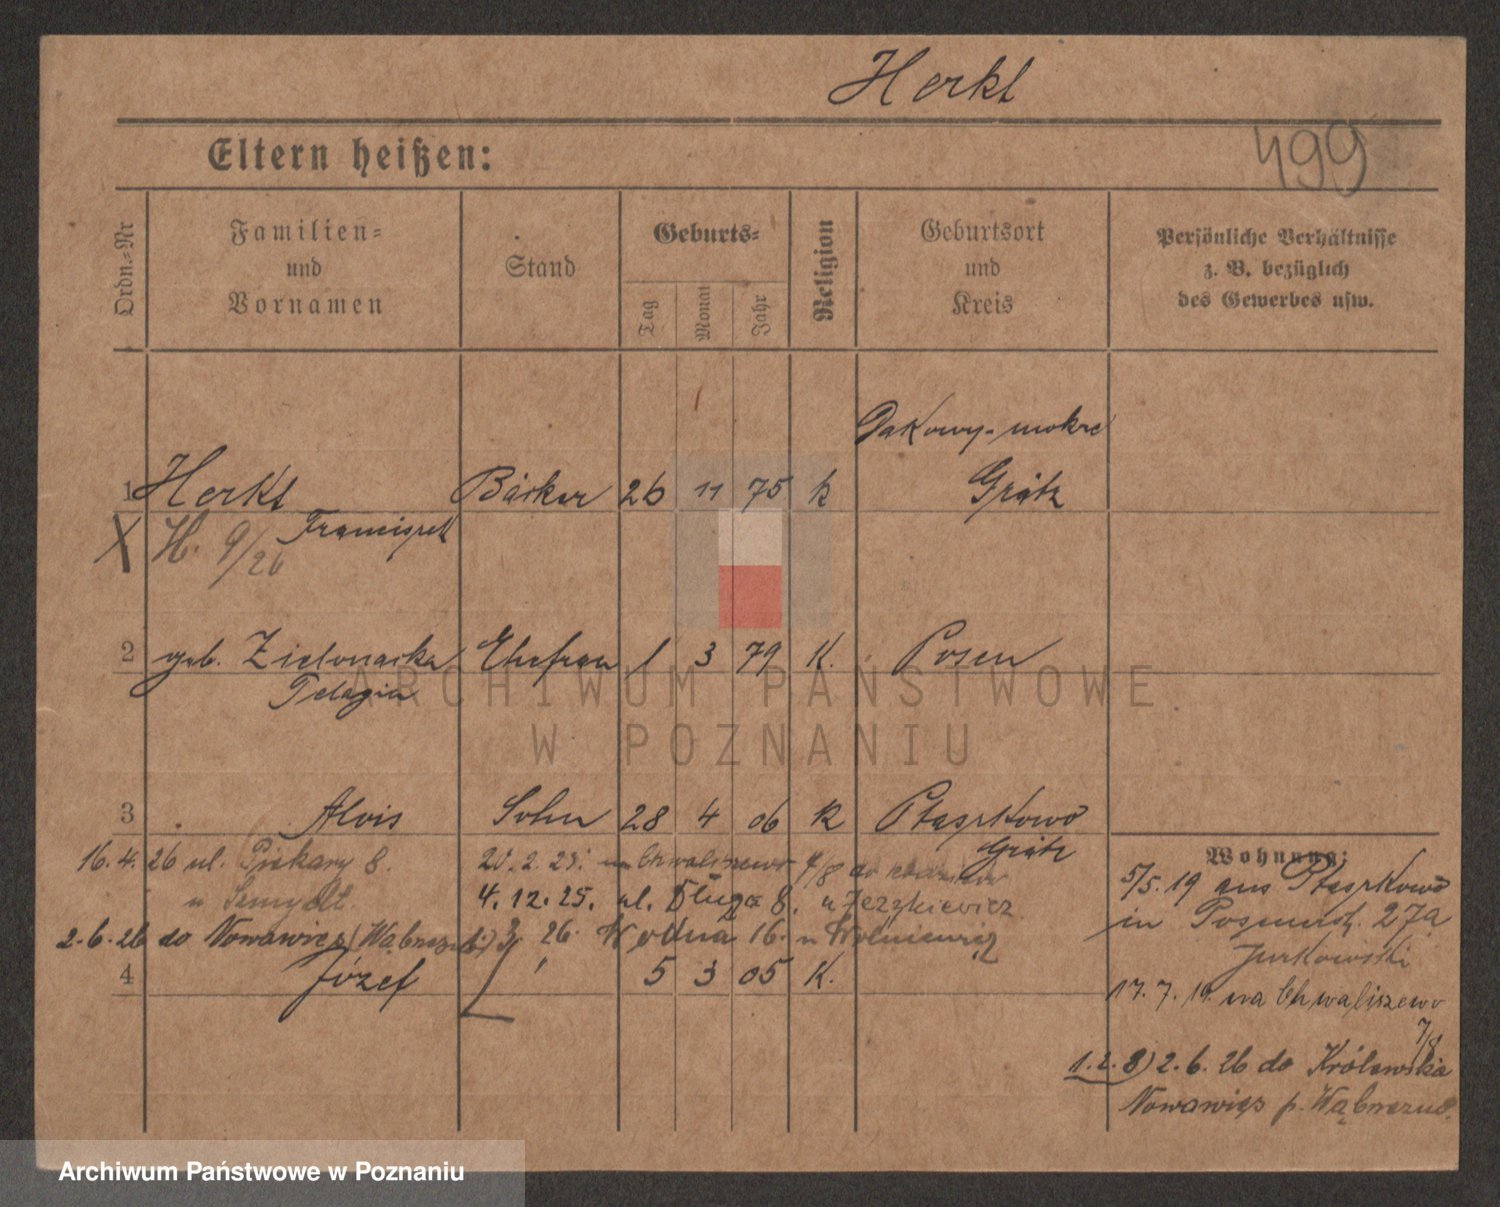 Herkt
499
Eltern heißen:
Ordn.-Nr
Familien-
und
Vornamen
Stand
Geburts-
Tag
Monat
Jahr
Religion
Geburtsort
und
Kreis
Persönliche Verhältnisse
z. B. bezüglich
des Gewerbes usw.
Dakowy-mokre
1 Herkt Bäcker 26 11 75 k Grätz
X H. 9/26 Franciszek
2 geb. Zielonacka Ehefrau 1 3 79 K. Posen
Pelagia
3 Alois Sohn 28 4 06 k Ptaszkowo
Grätz
16.4.26 ul. Piekary 8.
20.2.25. Chwaliszewo 7/8 do
4.12.25. ul. Długa 8. u Jezykiewicz
2.6.26 do Nowawieś (Wąbrzeski)
26. Wodna 16. u Wolniewicz
4 Józef 5 3 05 K.
Wohnung:
5/5.19 aus Ptaszkowo
in 27a
Jurkowski
17.7.19. na Chwaliszewo
7/8
1.2.3) 2.6.26 do Królewska
Nowawieś p. Wąbrzeźno
ARCHIWUM PAŃSTWOWE
W POZNANIU
Archiwum Państwowe w Poznaniu